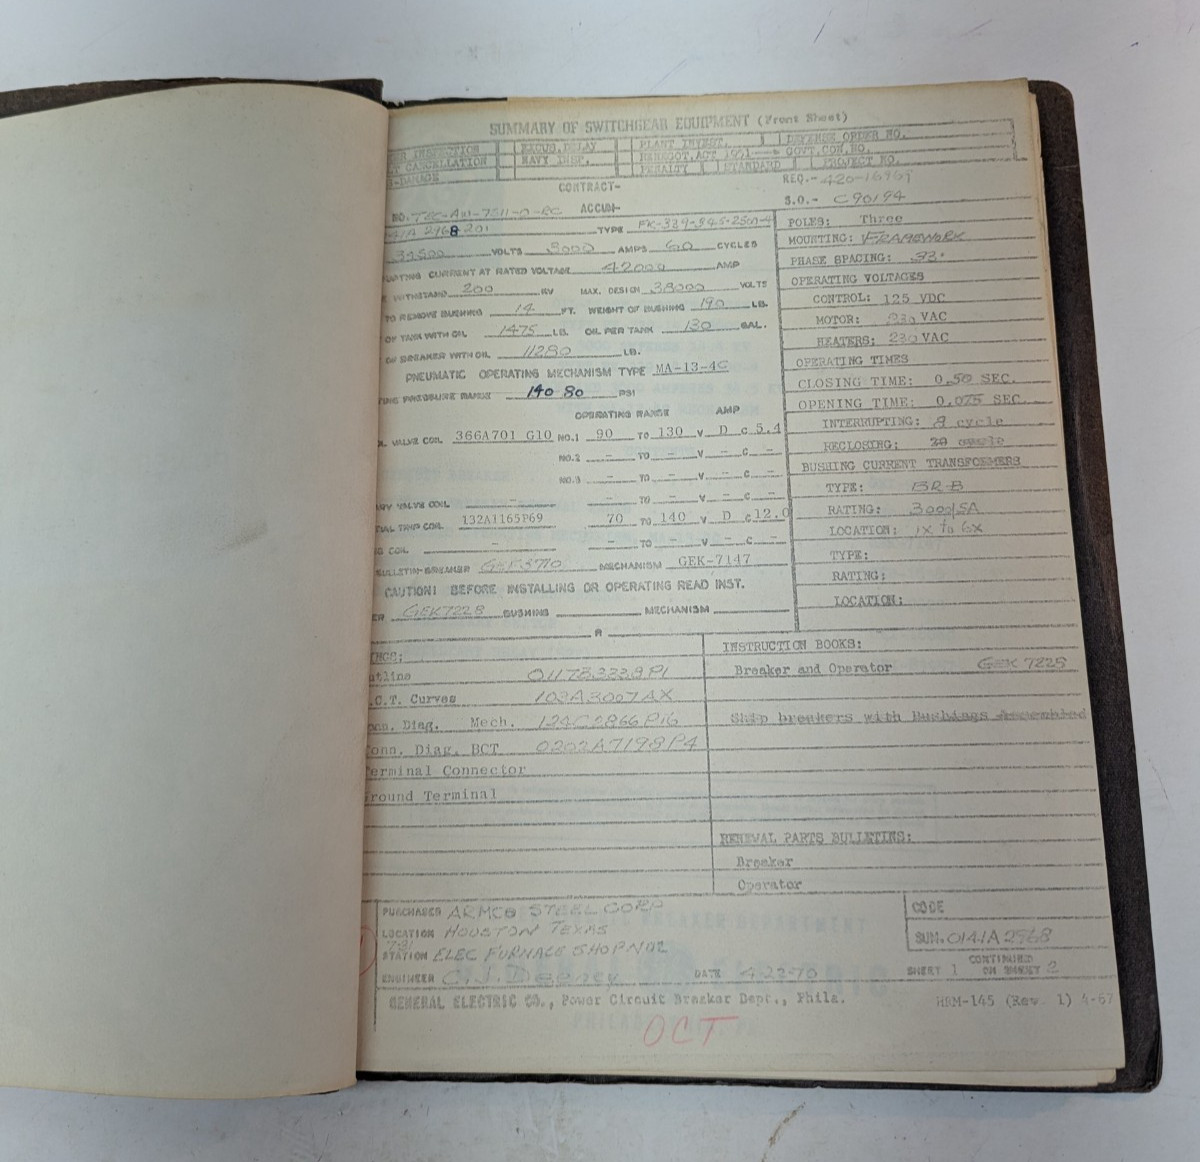 SUMMARY OF SWITCHGEAR EQUIPMENT (Front Sheet)
INSPECTION EXCUS. DELAY PLANT INVEST. DEFENSE ORDER NO.
CANCELLATION NAVY INSP. RENEGOT. ACT 1951 GOVT. CON. NO.
DAMAGE PENALTY STANDARD PROJECT NO.
CONTRACT- REQ.-
NO. ACCUM- S.O.- C90194
TYPE POLES: Three
VOLTS 3000 AMPS 60 CYCLES MOUNTING: FRAMEWORK
CURRENT AT RATED VOLTAGE 42000 AMP PHASE SPACING: 33"
WITHSTAND 200 KV MAX. DESIGN 38000 VOLTS OPERATING VOLTAGES
TO REMOVE BUSHING 14 FT. WEIGHT OF BUSHING 190 LB. CONTROL: 125 VDC
OF TANK WITH OIL 1475 LB. OIL PER TANK 130 GAL. MOTOR: 230 VAC
OF BREAKER WITH OIL 11280 LB. HEATERS: 230 VAC
PNEUMATIC OPERATING MECHANISM TYPE MA-13-4C OPERATING TIMES
PRESSURE RANGE 140 80 PSI CLOSING TIME: 0.50 SEC.
OPERATING RANGE AMP OPENING TIME: 0.075 SEC.
VALVE COIL 366A701 G10 NO.1 90 TO 130 V D C 5.4 INTERRUPTING: 8 cycle
NO.2 - TO - V - C - RECLOSING:
NO.3 - TO - V - C - BUSHING CURRENT TRANSFORMERS
VALVE COIL - - TO - V - C - TYPE: BRB
TRIP COIL 132A1165P69 70 TO 140 V D C 12.0 RATING: 3000/5A
COIL - - TO - V - C - LOCATION: 1X to 6X
BULLETIN-BREAKER MECHANISM GEK-7147 TYPE:
CAUTION! BEFORE INSTALLING OR OPERATING READ INST. RATING:
GEK7228 BUSHING MECHANISM LOCATION:
INSTRUCTION BOOKS:
Breaker and Operator GEK 7228
C.T. Curves 102A3007AX
Conn. Diag. Mech. 124C2866P16 Ship breakers with Bushings Assembled
Conn. Diag. BCT 0202A7198P4
Terminal Connector
Ground Terminal
RENEWAL PARTS BULLETINS:
Breaker
Operator
PURCHASER ARMCO STEEL CORP CODE
LOCATION HOUSTON TEXAS
SUM. 0141A2968
STATION ELEC FURNACE SHOP NO2
CONTINUED
ENGINEER DATE 4-22-70 SHEET 1 ON SHEET 2
GENERAL ELECTRIC CO., Power Circuit Breaker Dept., Phila. HRM-145 (Rev. 1) 4-67
OCT